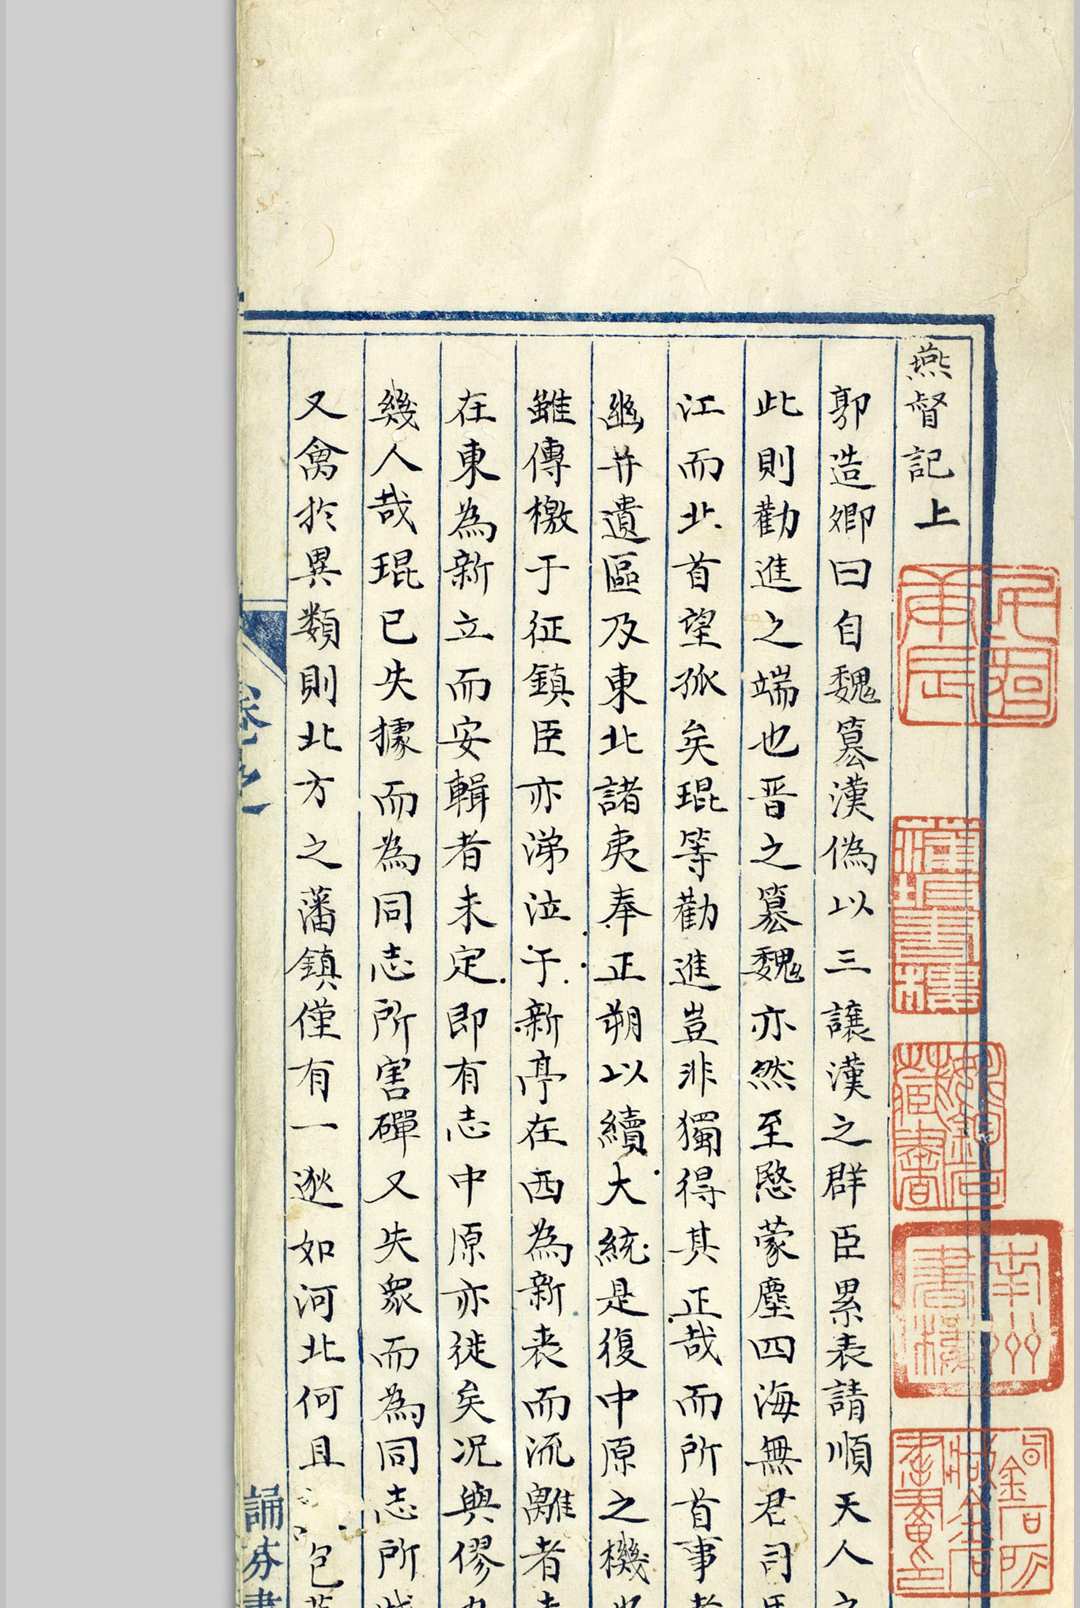 燕督記上
郭造卿曰自魏簒漢偽以三讓漢之群臣累表請順天人之
此則勸進之端也晋之簒魏亦然至愍蒙塵四海無君司馬
江而北首望孤矣琨等勸進豈非獨得其正哉而所首事者
幽并遺區及東北諸夷奉正朔以續大統是復中原之機也
雖傳檄于征鎮臣亦涕泣于新亭在西為新丧而流離者
在東為新立而安輯者未定即有志中原亦徙矣况與僇
幾人哉琨已失據而為同志所害磾又失衆而為同志所
又禽於異類則北方之藩鎮僅有一逖如河北何且
包
卷之
誦芬
南州書樓